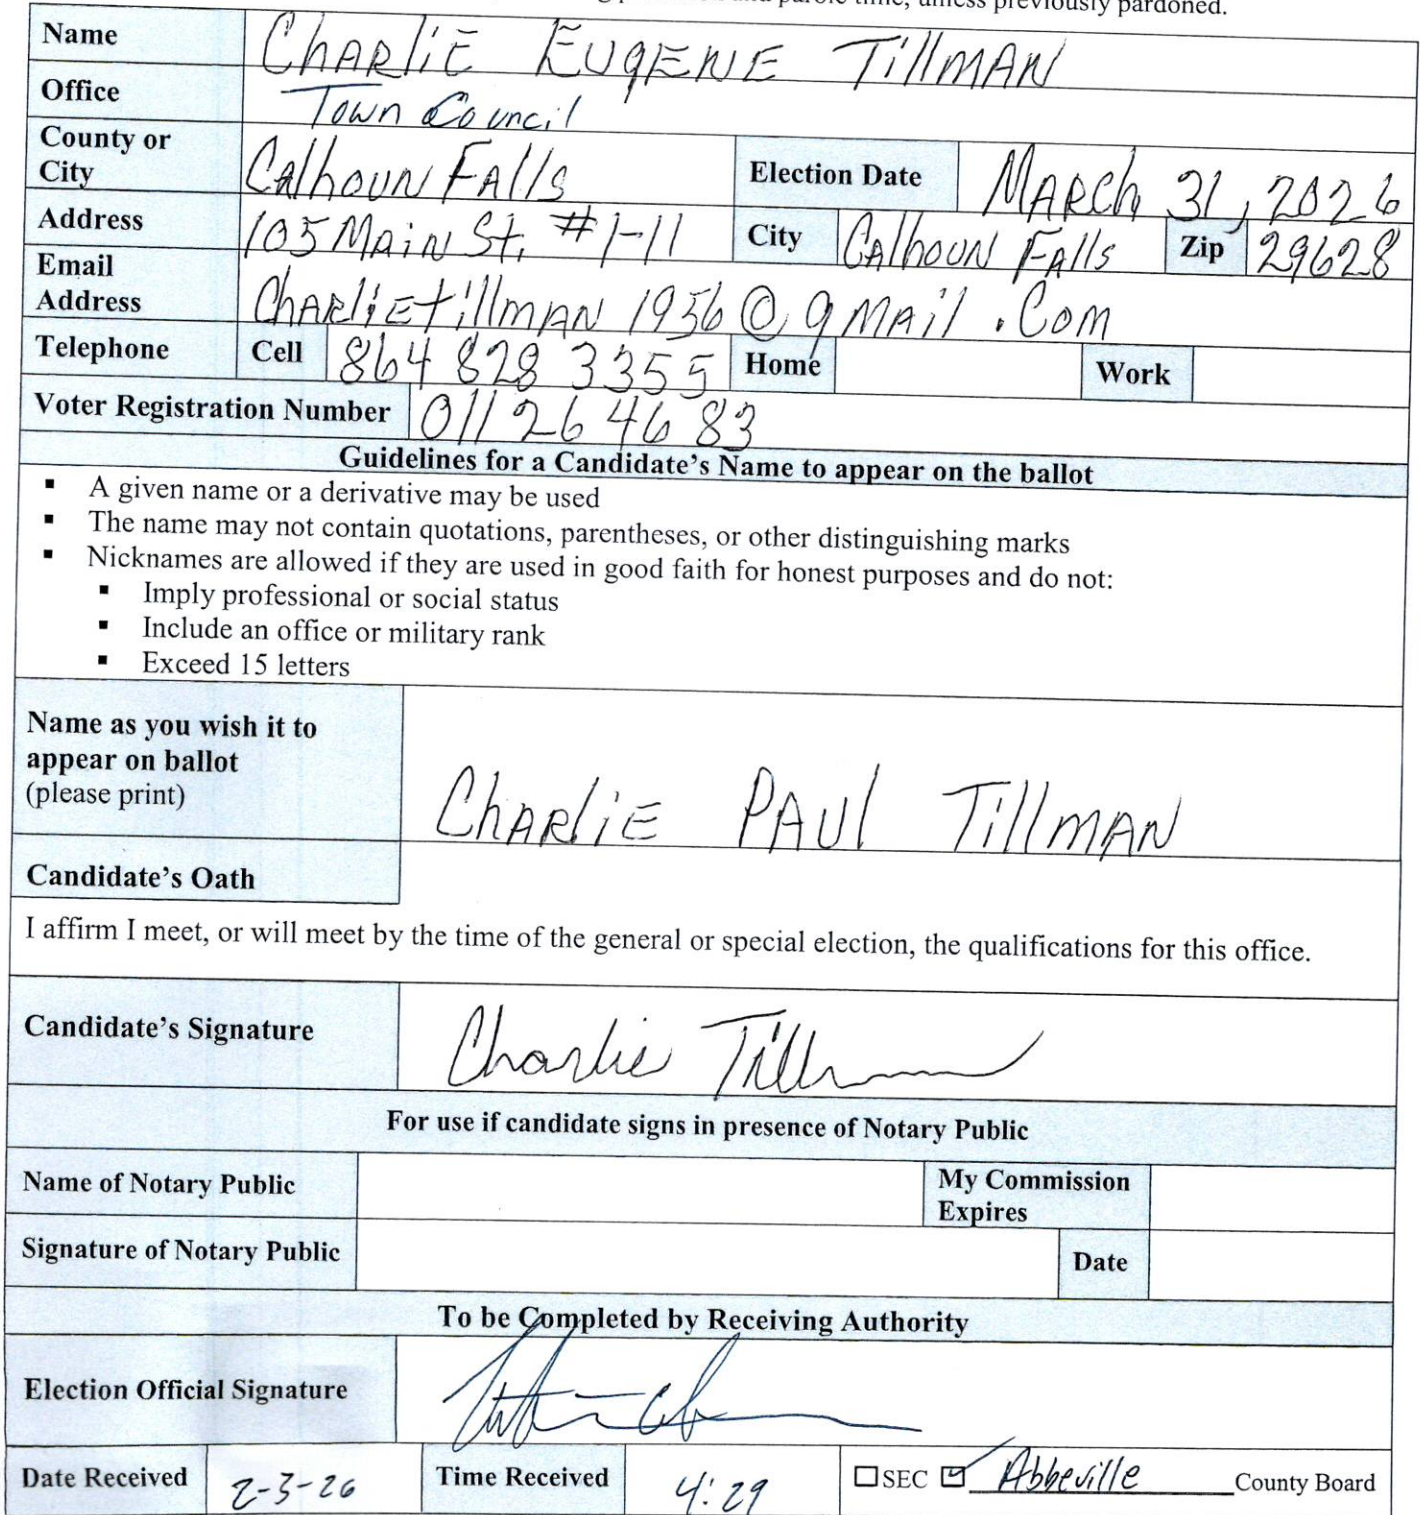 unless previously pardoned.
Name CHARLIE EUGENE TILLMAN
Office Town Council
County or City Calhoun Falls Election Date MARCH 31, 2026
Address 105 MAIN St. #1-11 City Calhoun Falls Zip 29628
Email Address CHARLIEtillMAN 1956@gMAil.Com
Telephone Cell 864 828 3355 Home Work
Voter Registration Number 011 26 46 83
Guidelines for a Candidate's Name to appear on the ballot
▪ A given name or a derivative may be used
▪ The name may not contain quotations, parentheses, or other distinguishing marks
▪ Nicknames are allowed if they are used in good faith for honest purposes and do not:
▪ Imply professional or social status
▪ Include an office or military rank
▪ Exceed 15 letters
Name as you wish it to
appear on ballot
(please print) CHARLIE PAUL TILLMAN
Candidate's Oath
I affirm I meet, or will meet by the time of the general or special election, the qualifications for this office.
Candidate's Signature Charlie Tillman
For use if candidate signs in presence of Notary Public
Name of Notary Public My Commission Expires
Signature of Notary Public Date
To be Completed by Receiving Authority
Election Official Signature
Date Received 2-3-26 Time Received 4:29 ☐SEC ☑ Abbeville County Board